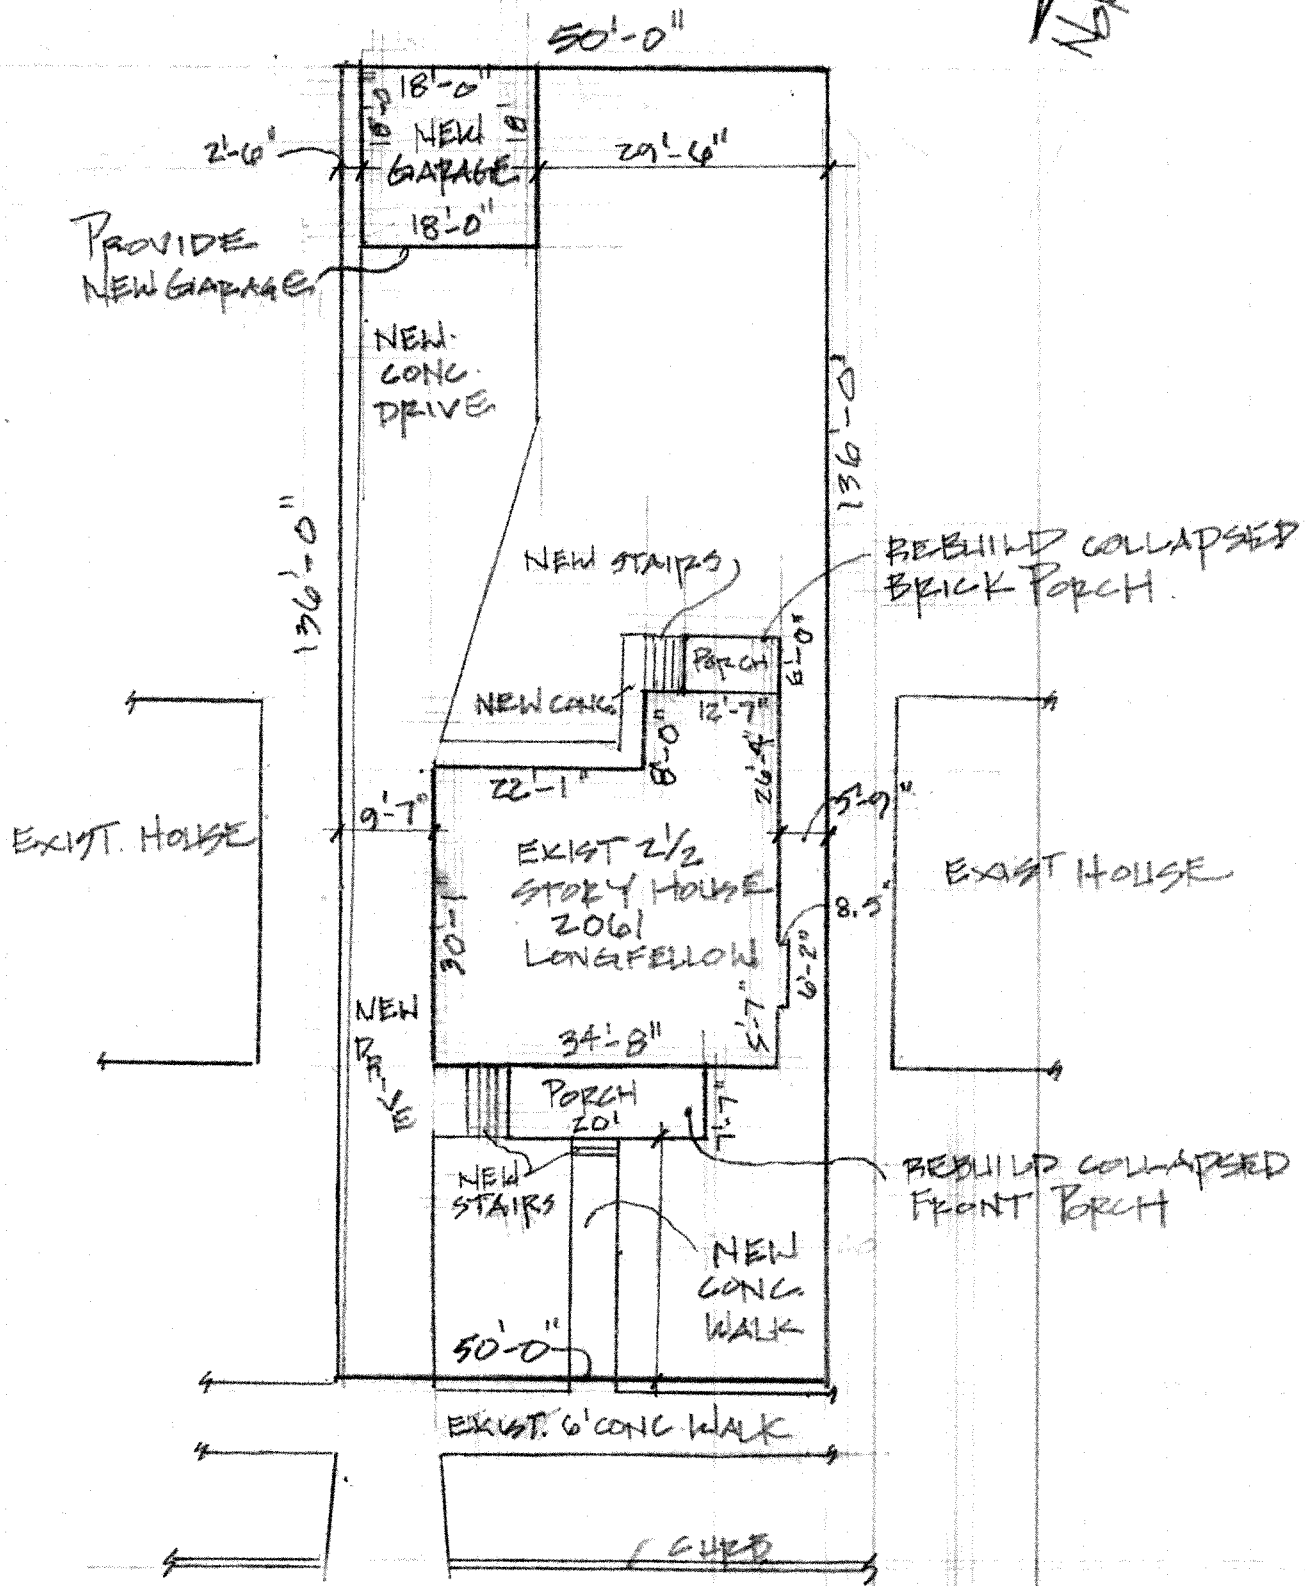 50'-0"
18'-0"
18'-0"
18'
NEW
GARAGE
18'-0"
2'-6"
29'-6"
PROVIDE
NEW GARAGE
NEW
CONC.
DRIVE
136'-0"
136'-0"
NEW STAIRS
REBUILD COLLAPSED
BRICK PORCH.
PORCH
6'-0"
NEW CONC.
12'-7"
8'-0"
26'-4"
22'-1"
9'-7"
5'-9"
EXIST. HOUSE
EXIST 2 1/2
STORY HOUSE
2061
LONGFELLOW
EXIST HOUSE
8.5"
30'-1"
6'-2"
5'-7"
NEW
DRIVE
34'-8"
PORCH
20'
7'-7"
NEW
STAIRS
REBUILD COLLAPSED
FRONT PORCH
NEW
CONC.
WALK
50'-0"
EXIST. 6' CONC WALK
CURB